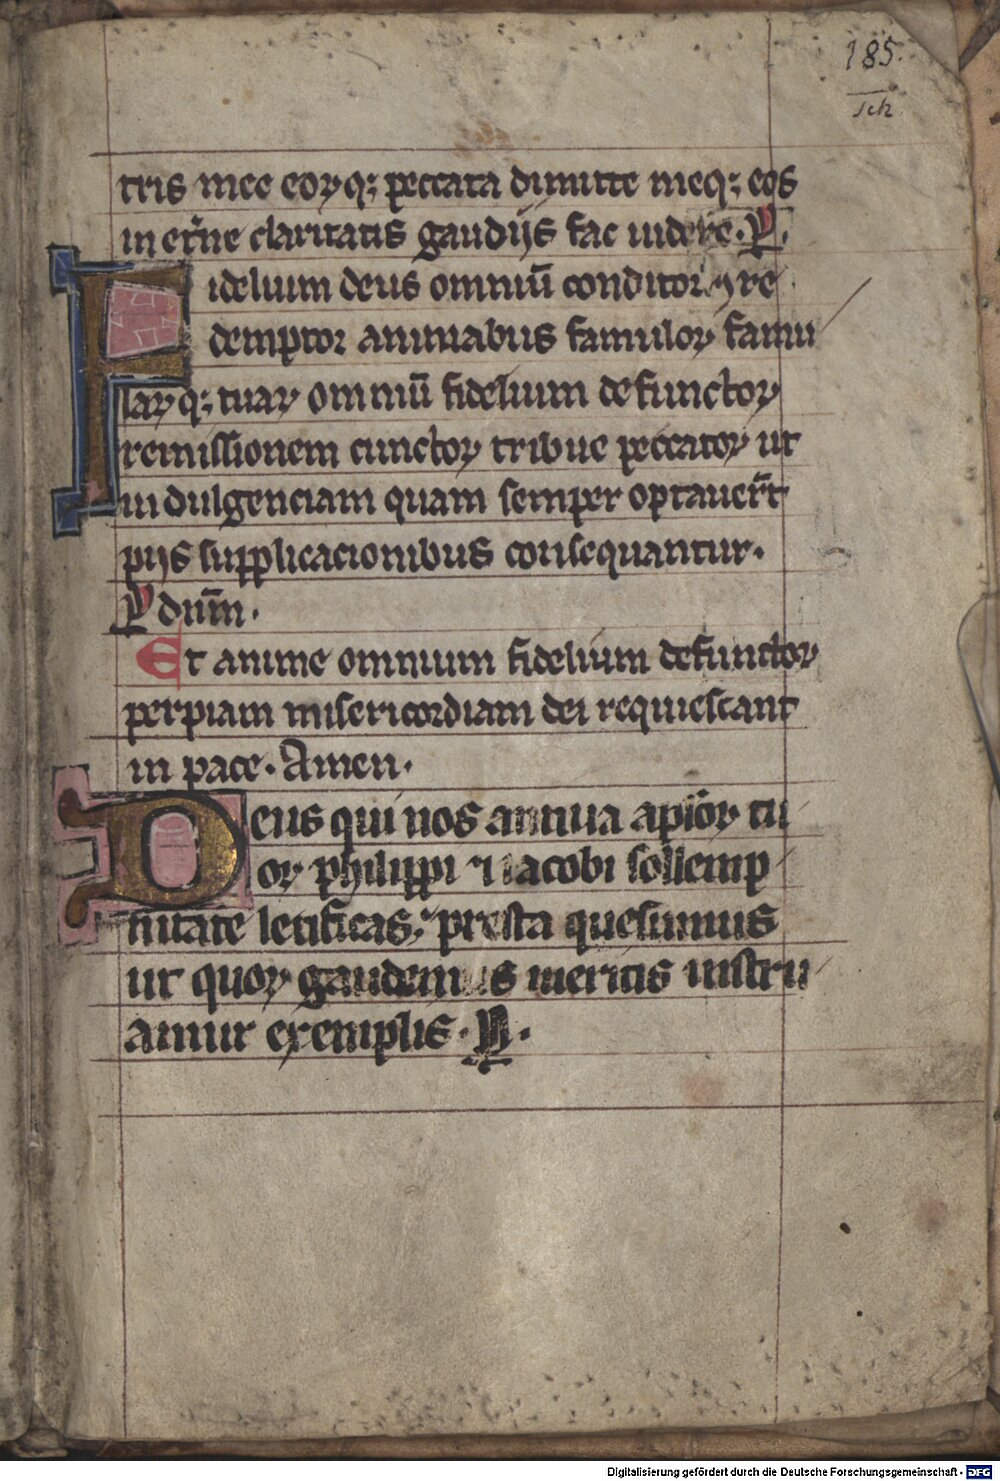 185.
sch
tris mee eorꝝq; peccata dimitte meq; eos
in et̄ne claritatis gaudijs fac uidere. P.
Fidelium deus omniū conditor ⁊ re
demptor animabus famuloꝝ famu
laꝝq; tuaꝝ omniū fidelium defunctoꝝ
remissionem cunctoꝝ tribue peccatoꝝ ut
indulgenciam quam semper optauer̄t
pijs supplicacionibus consequantur.
P dn̄m.
Et anime omnium fidelium defunctoꝝ
per piam misericordiam dei requiescant
in pace. Amen.
Deus qui nos annua ap̄loꝝ tu
oꝝ philippi ⁊ iacobi sollemp
nitate letificas, presta quesumus
ut quoꝝ gaudemus meritis instru
amur exemplis. P.
Digitalisierung gefördert durch die Deutsche Forschungsgemeinschaft - DFG